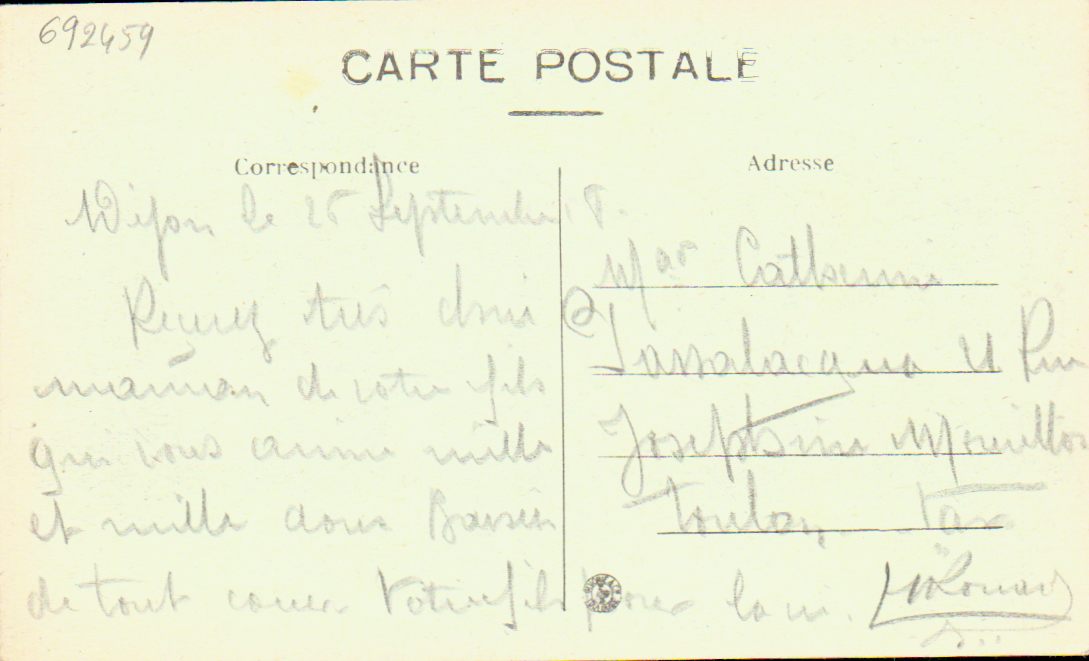 692459
CARTE POSTALE
Correspondance
Adresse
Dijon le 26 Septembre 18.
Recevez très chère
maman de votre fils
qui vous aime mille
et mille doux Baiser
de tout coeur Votre fils pour la vi.
Mme Catherine
Passalacqua 21 Rue
Joséphine Mouillor
Toulon Var